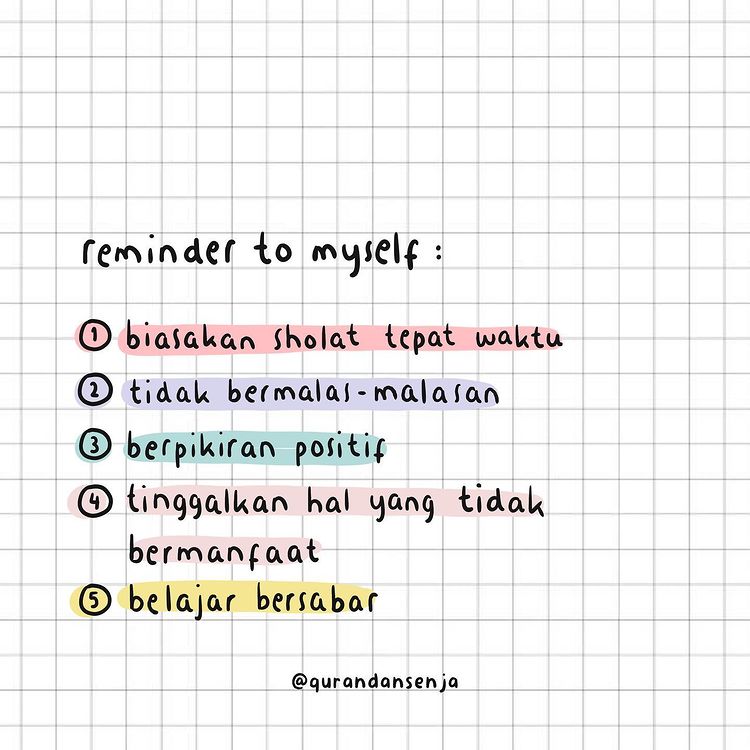 reminder to myself :
1 biasakan sholat tepat waktu
2 tidak bermalas-malasan
3 berpikiran positif
4 tinggalkan hal yang tidak
bermanfaat
5 belajar bersabar
@qurandansenja